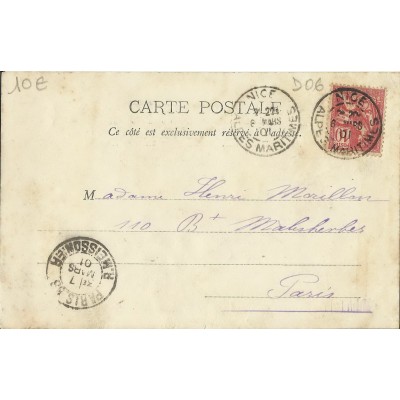 10E
D06
CARTE POSTALE
Ce côté est exclusivement réservé à l'adresse.
NICE
MARS
01
ALPES MARITIMES
NICE
MARS
01
ALPES MARITIMES
10
Madame Henri Marillon
110 Bt Malesherbes
Paris
R. MEISSONIER
7
MARS
01
PARIS